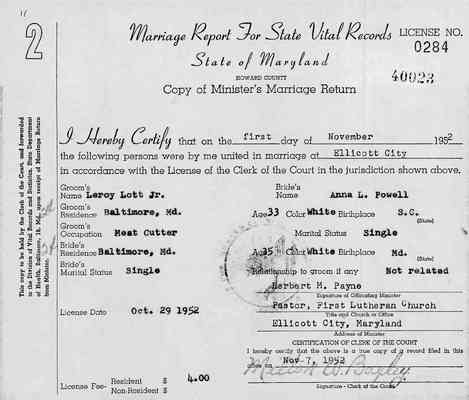 2
Marriage Report For State Vital Records LICENSE NO.
0284
State of Maryland
HOWARD COUNTY
40023
Copy of Minister's Marriage Return
I Hereby Certify that on the first day of November 1952
the following persons were by me united in marriage at Ellicott City
in accordance with the License of the Clerk of the Court in the jurisdiction shown above.
Groom's Name Leroy Lott Jr. Bride's Name Anna L. Powell
Groom's Residence Baltimore, Md. Age 33 Color White Birthplace S.C.
(State)
Groom's Occupation Meat Cutter Marital Status Single
Bride's Residence Baltimore, Md. Age 35 Color White Birthplace Md.
(State)
Bride's Marital Status Single Relationship to groom if any Not related
Herbert M. Payne
Signature of Officiating Minister
Pastor, First Lutheran Church
Title and Church or Office
License Date Oct. 29 1952
Ellicott City, Maryland
Address of Minister
CERTIFICATION OF CLERK OF THE COURT
I hereby certify that the above is a true copy of a record filed in this
office on Nov 7, 1952
License Fee- Resident $ 4.00
Non-Resident $
Signature - Clerk of the Court
This copy to be held by the Clerk of the Court, and forwarded
to the Division of Vital Records and Statistics, State Department
of Health, Baltimore, 18, Md. upon receipt of Marriage Return
from Minister.